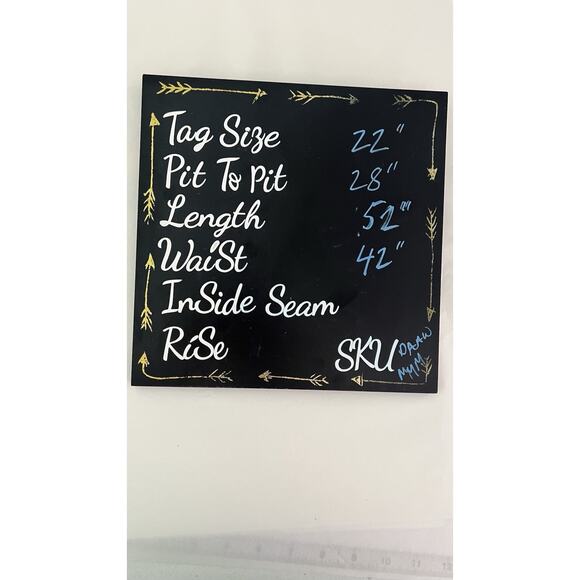 Tag Size 22"
Pit To Pit 28"
Length 52"
Waist 42"
InSide Seam
Rise
SKU
7 8 9 10 11 12